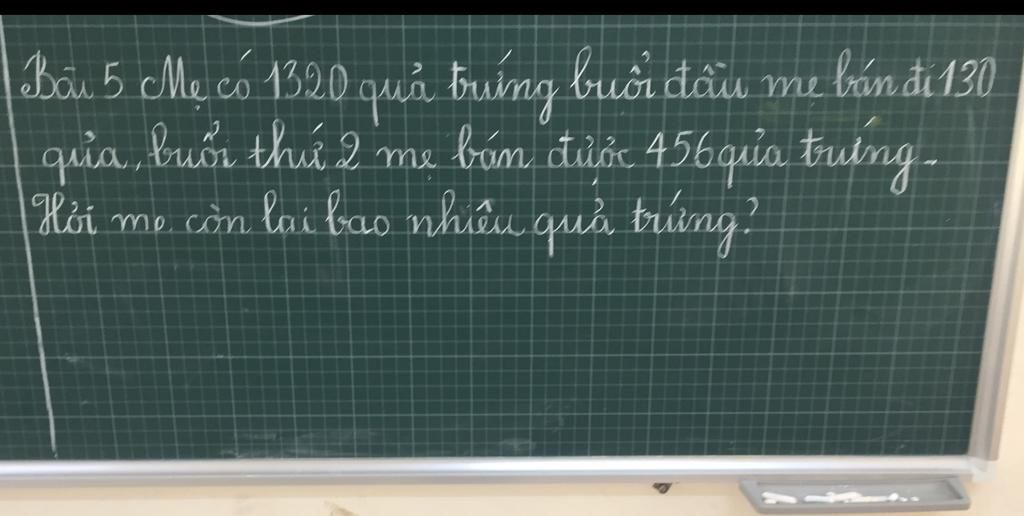 Bài 5 Mẹ có 1320 quả trứng buổi đầu mẹ bán đi 130
quả, buổi thứ 2 mẹ bán được 456 quả trứng.
Hỏi mẹ còn lại bao nhiêu quả trứng?